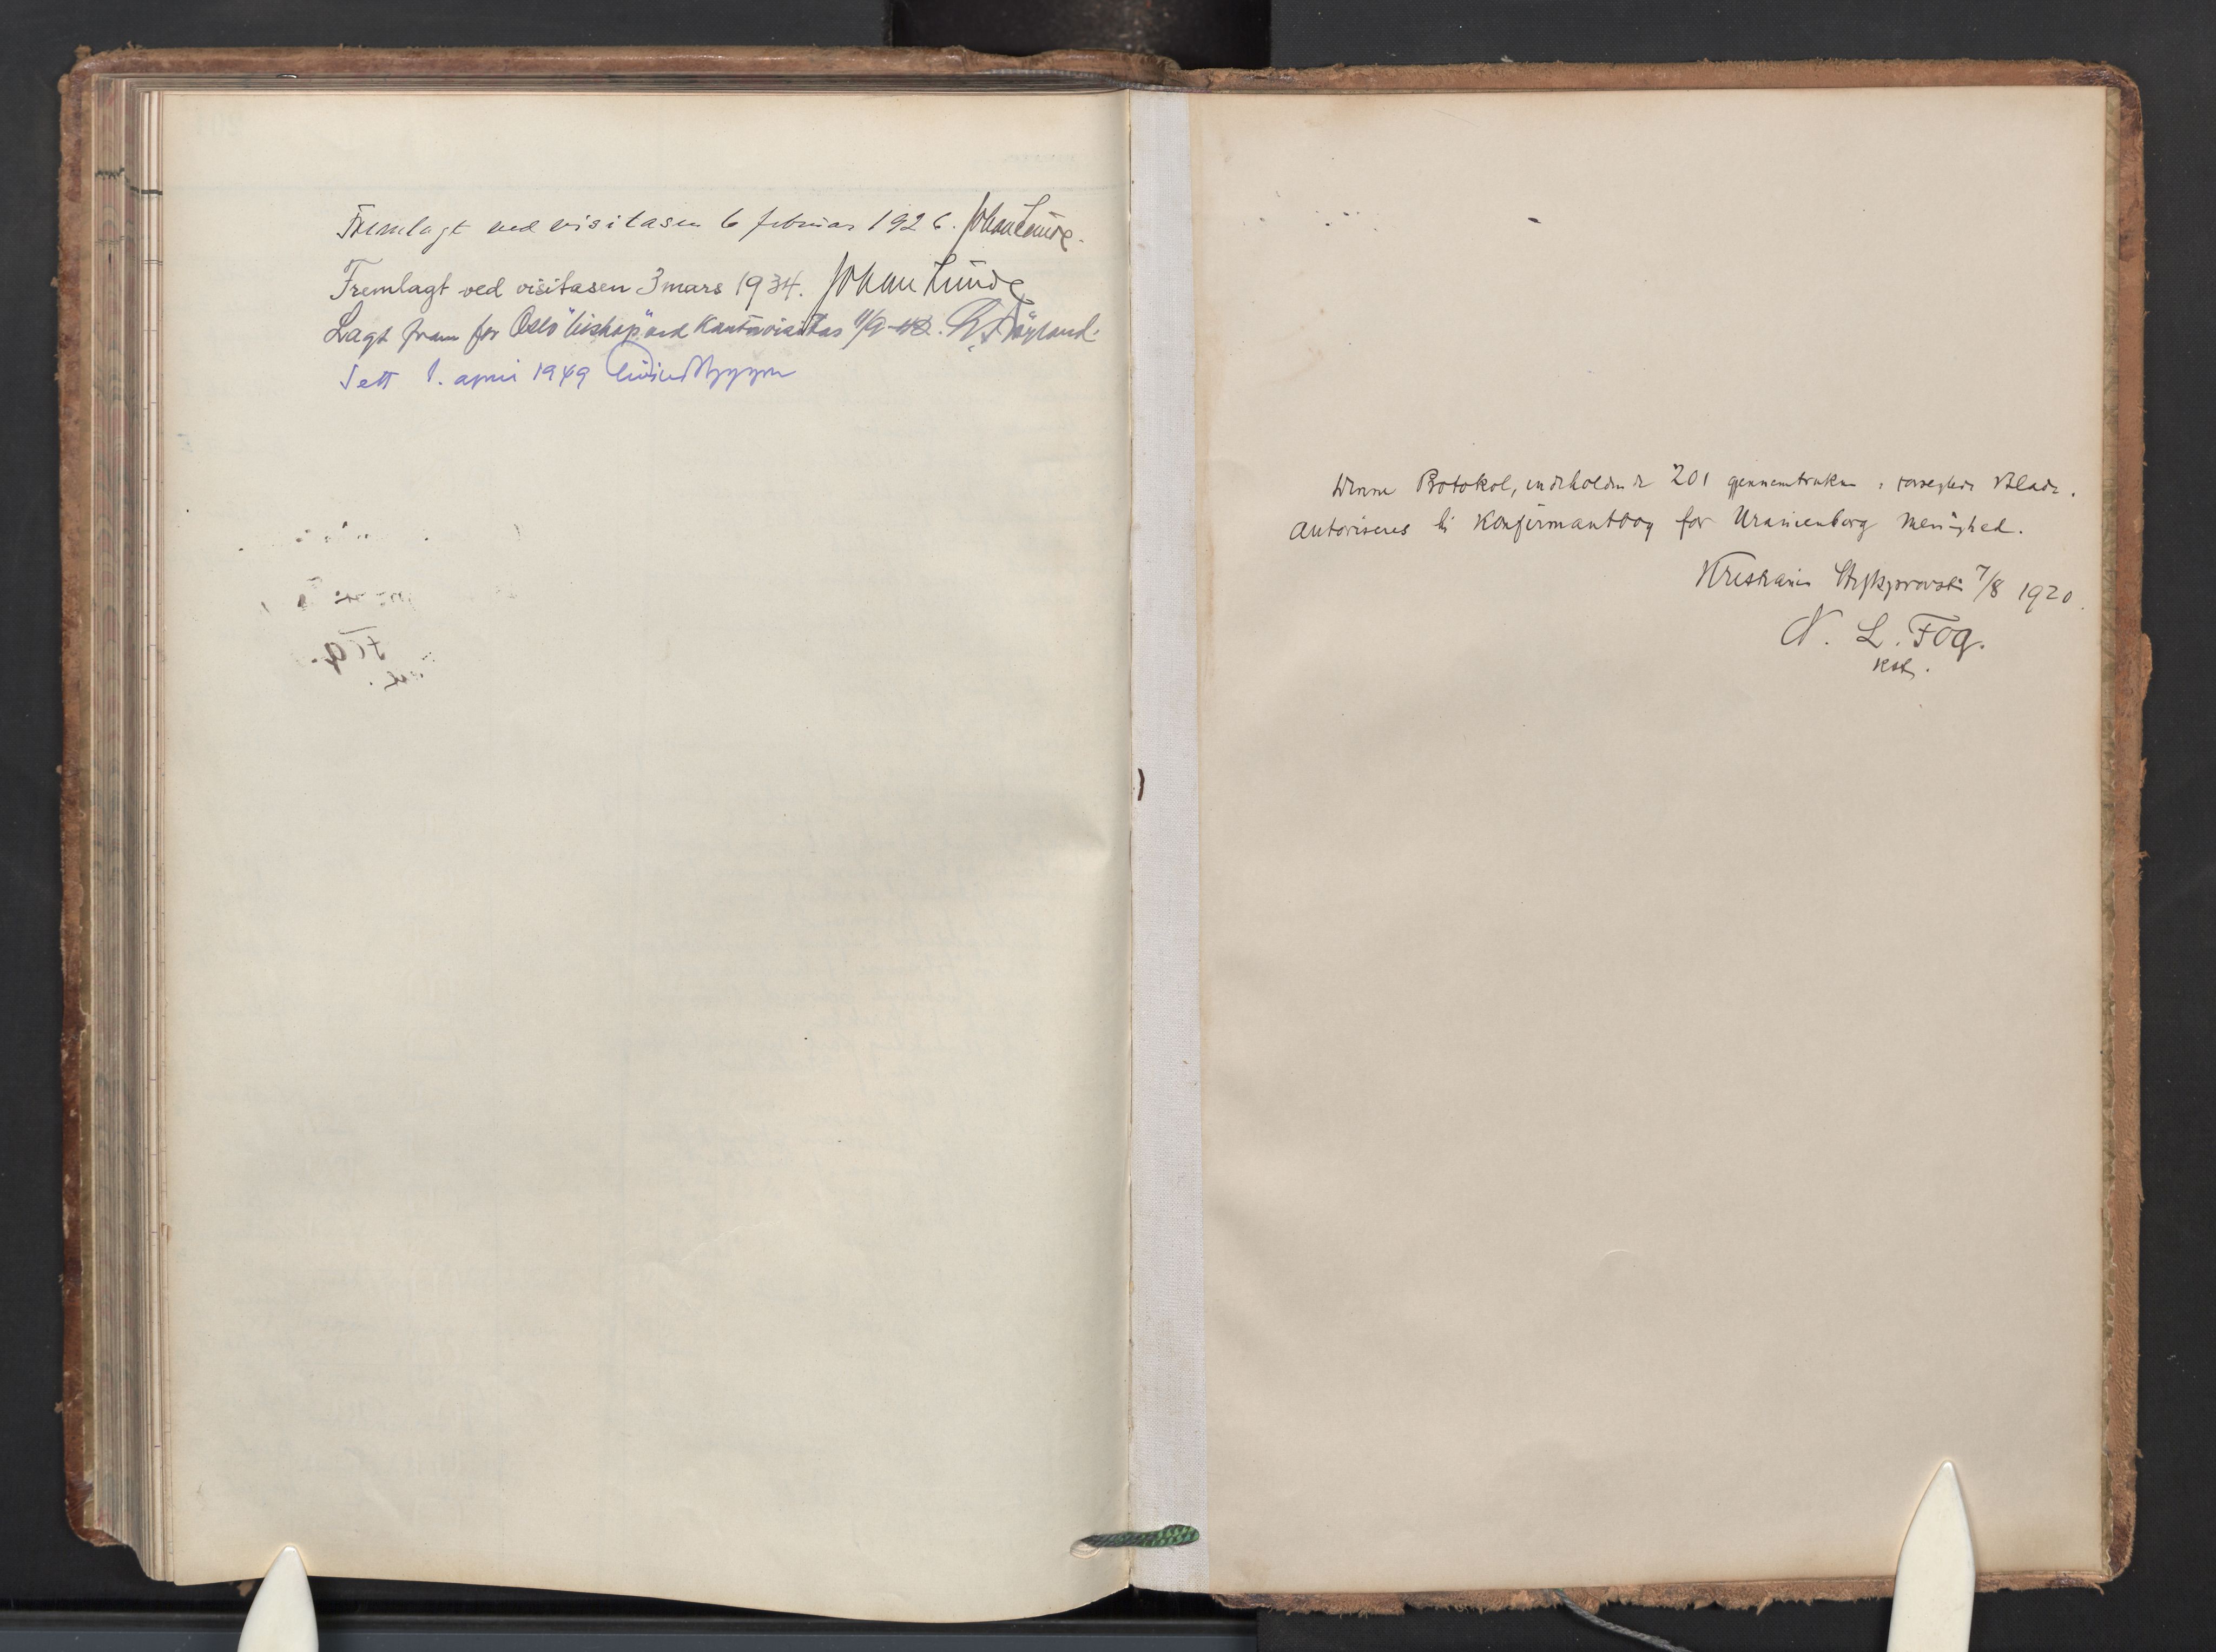 Fremlagt ved visitasen 6 februar 1926. Johan Lunde.
Fremlagt ved visitasen 3 mars 1934. Johan Lunde
Lagt fram for Oslo "bishop" ved 11/9-42.
Sett 1. april 1949
Denne Protokol, indeholdende 201 gjennemtrukne forseglede Blade.
Autoriseres til Konfirmantbog for Uranienborg Menighed.
Kristiania Stiftsprovsti 7/8 1920.
N. L. Fog.
kst.